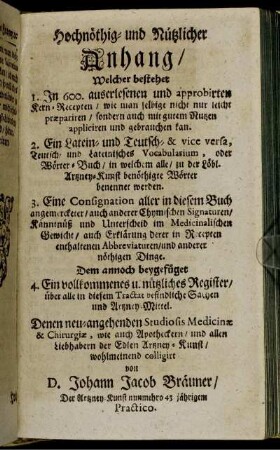 Hochnöthig- und Nützlicher
Anhang/
Welcher bestehet
1. In 600. auserlesenen und approbirten
Kern-Recepten/ wie man selbige nicht nur leicht
præpariren/ sondern auch mit gutem Nutzen
appliciren und gebrauchen kan.
2. Ein Latein- und Teutsch- & vice versa,
Teutsch- und Lateinisches Vocabularium, oder
Wörter-Buch/ in welchem alle/ zu der Löbl.
Artzney-Kunst benöthigte Wörter
benennet werden.
3. Eine Consignation aller in diesem Buch
angemerckter/ auch anderer Chymischen Signaturen/
Känntnüß und Unterscheid im Medicinalischen
Gewicht/ auch Erklärung derer in Recepten
enthaltenen Abbreviaturen/ und anderer
nöthigen Dinge.
Dem annoch beygefüget
4. Ein vollkommenes u. nützliches Register/
über alle in diesem Tractat befindliche Sachen
und Artzney-Mittel.
Denen neu-angehenden Studiosis Medicinæ
& Chirurgiæ, wie auch Apotheckern/ und allen
Liebhabern der Edlen Artzney-Kunst/
wohlmeinend colligirt
von
D. Johann Jacob Bräuner/
Der Artzney-Kunst nunmehro 43 jährigem
Practico.